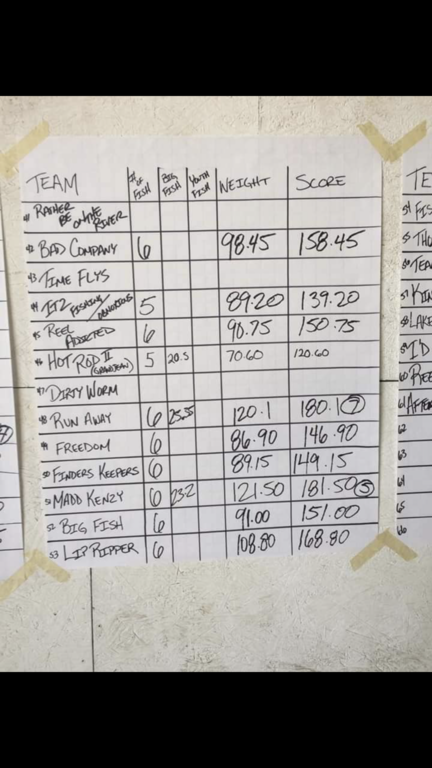 TEAM # OF FISH BIG FISH YOUTH FISH WEIGHT SCORE
41 RATHER BE ON THE RIVER
42 BAD COMPANY 6 98.45 158.45
43 TIME FLYS
44 ITZ FISHING / 5 89.20 139.20
45 REEL ADDICTED 6 90.75 150.75
46 HOT ROD II (GRANDJEAN) 5 20.5 70.60 120.60
47 DIRTY WORM
48 RUN AWAY 6 25.5 120.1 180.1 7
49 FREEDOM 6 86.90 146.90
50 FINDERS KEEPERS 6 89.15 149.15
51 MADD KENZY 6 23.2 121.50 181.50 5
52 BIG FISH 6 91.00 151.00
53 LIP RIPPER 6 108.80 168.80
TE
54 FIS
55 THU
56 TEA
57 KIN
58 LAKE
59 I'D
60 REE
61 AFTER
62
63
64
65
66